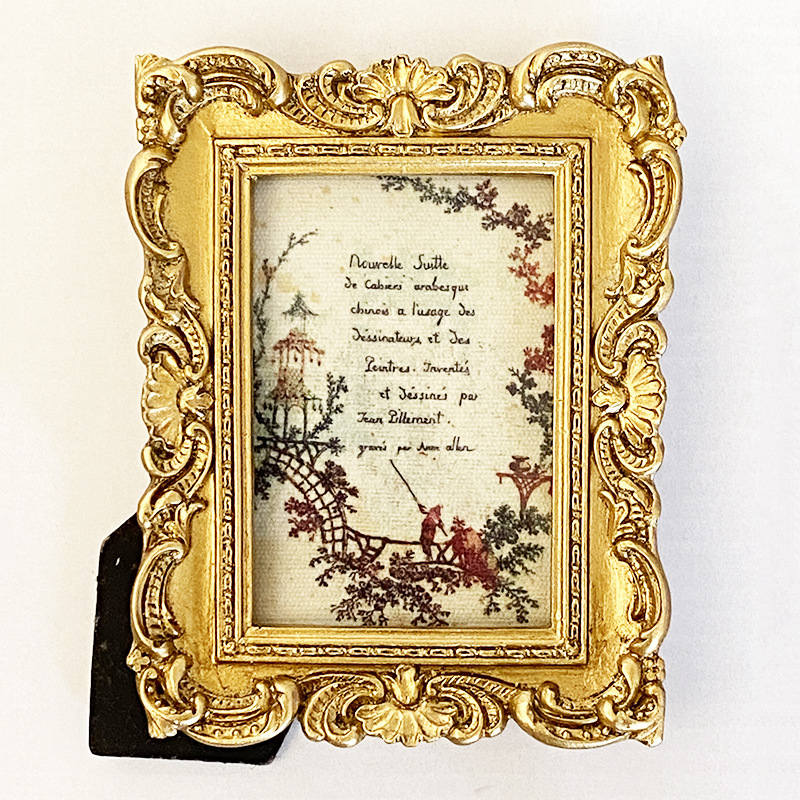 Nouvelle Suitte
de Cahiers arabesque
chinois a l'usage des
déssinateurs et des
Peintres. Inventés
et déssinés par
Jean Pillement.
gravés par Anne allen